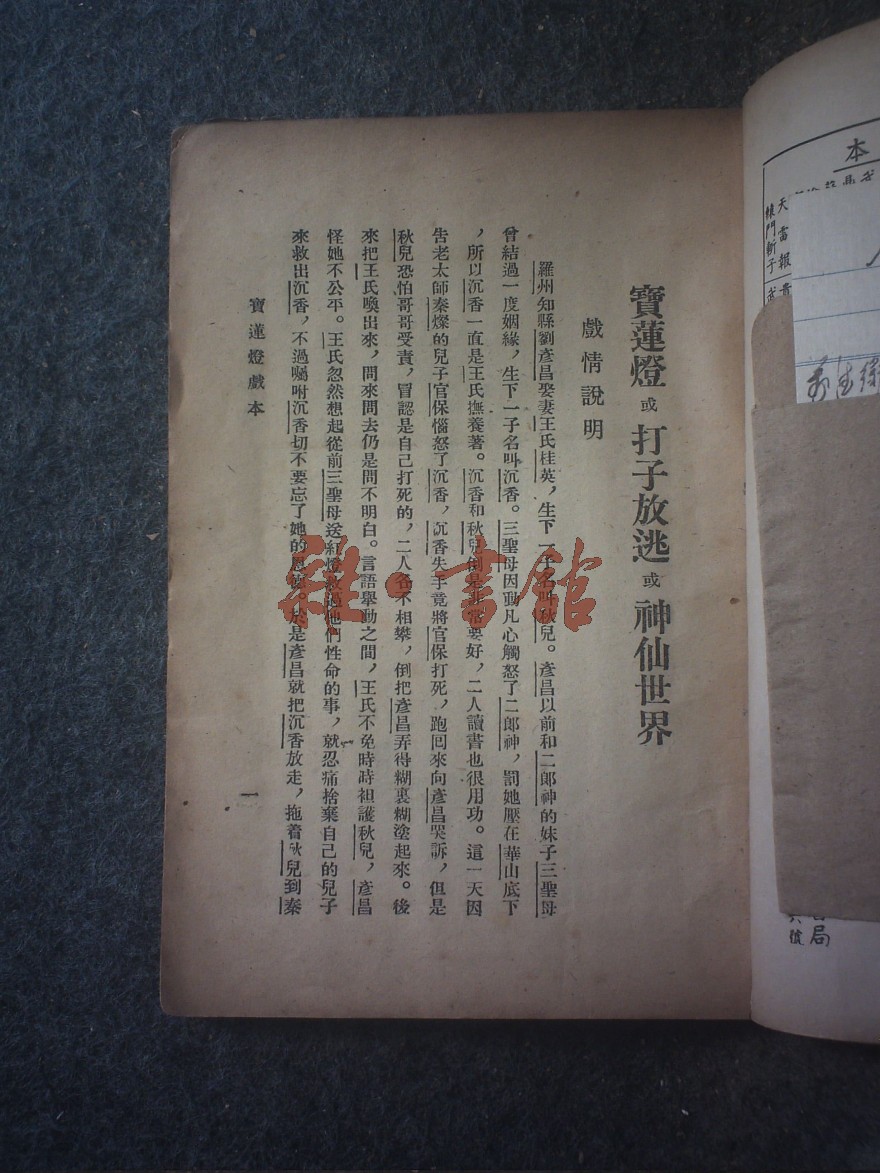 寶蓮燈或打子放逃或神仙世界
戲情說明
羅州知縣劉彥昌娶妻王氏桂英，生下一子名叫秋兒。彥昌以前和二郎神的妹子三聖母
曾結過一度姻緣，生下一子名叫沉香。三聖母因動凡心觸怒了二郎神，罰她壓在華山底下
，所以沉香一直是王氏撫養著。沉香和秋兒倒是非常要好，二人讀書也很用功。這一天因
告老太師秦燦的兒子官保惱怒了沉香，沉香失手竟將官保打死，跑回來向彥昌哭訴，但是
秋兒恐怕哥哥受責，冒認是自己打死的，二人各不相攀，倒把彥昌弄得糊裏糊塗起來。後
來把王氏喚出來，問來問去仍是問不明白。言語舉動之間，王氏不免時時袒護秋兒，彥昌
怪她不公平。王氏忽然想起從前三聖母送紅燈救過他們性命的事，就忍痛捨棄自己的兒子
來救出沉香，不過囑咐沉香切不要忘了她的恩德。於是彥昌就把沉香放走，拖着秋兒到秦
寶蓮燈戲本
一
雜·書館
本
天雷報
轅門斬子
局
號